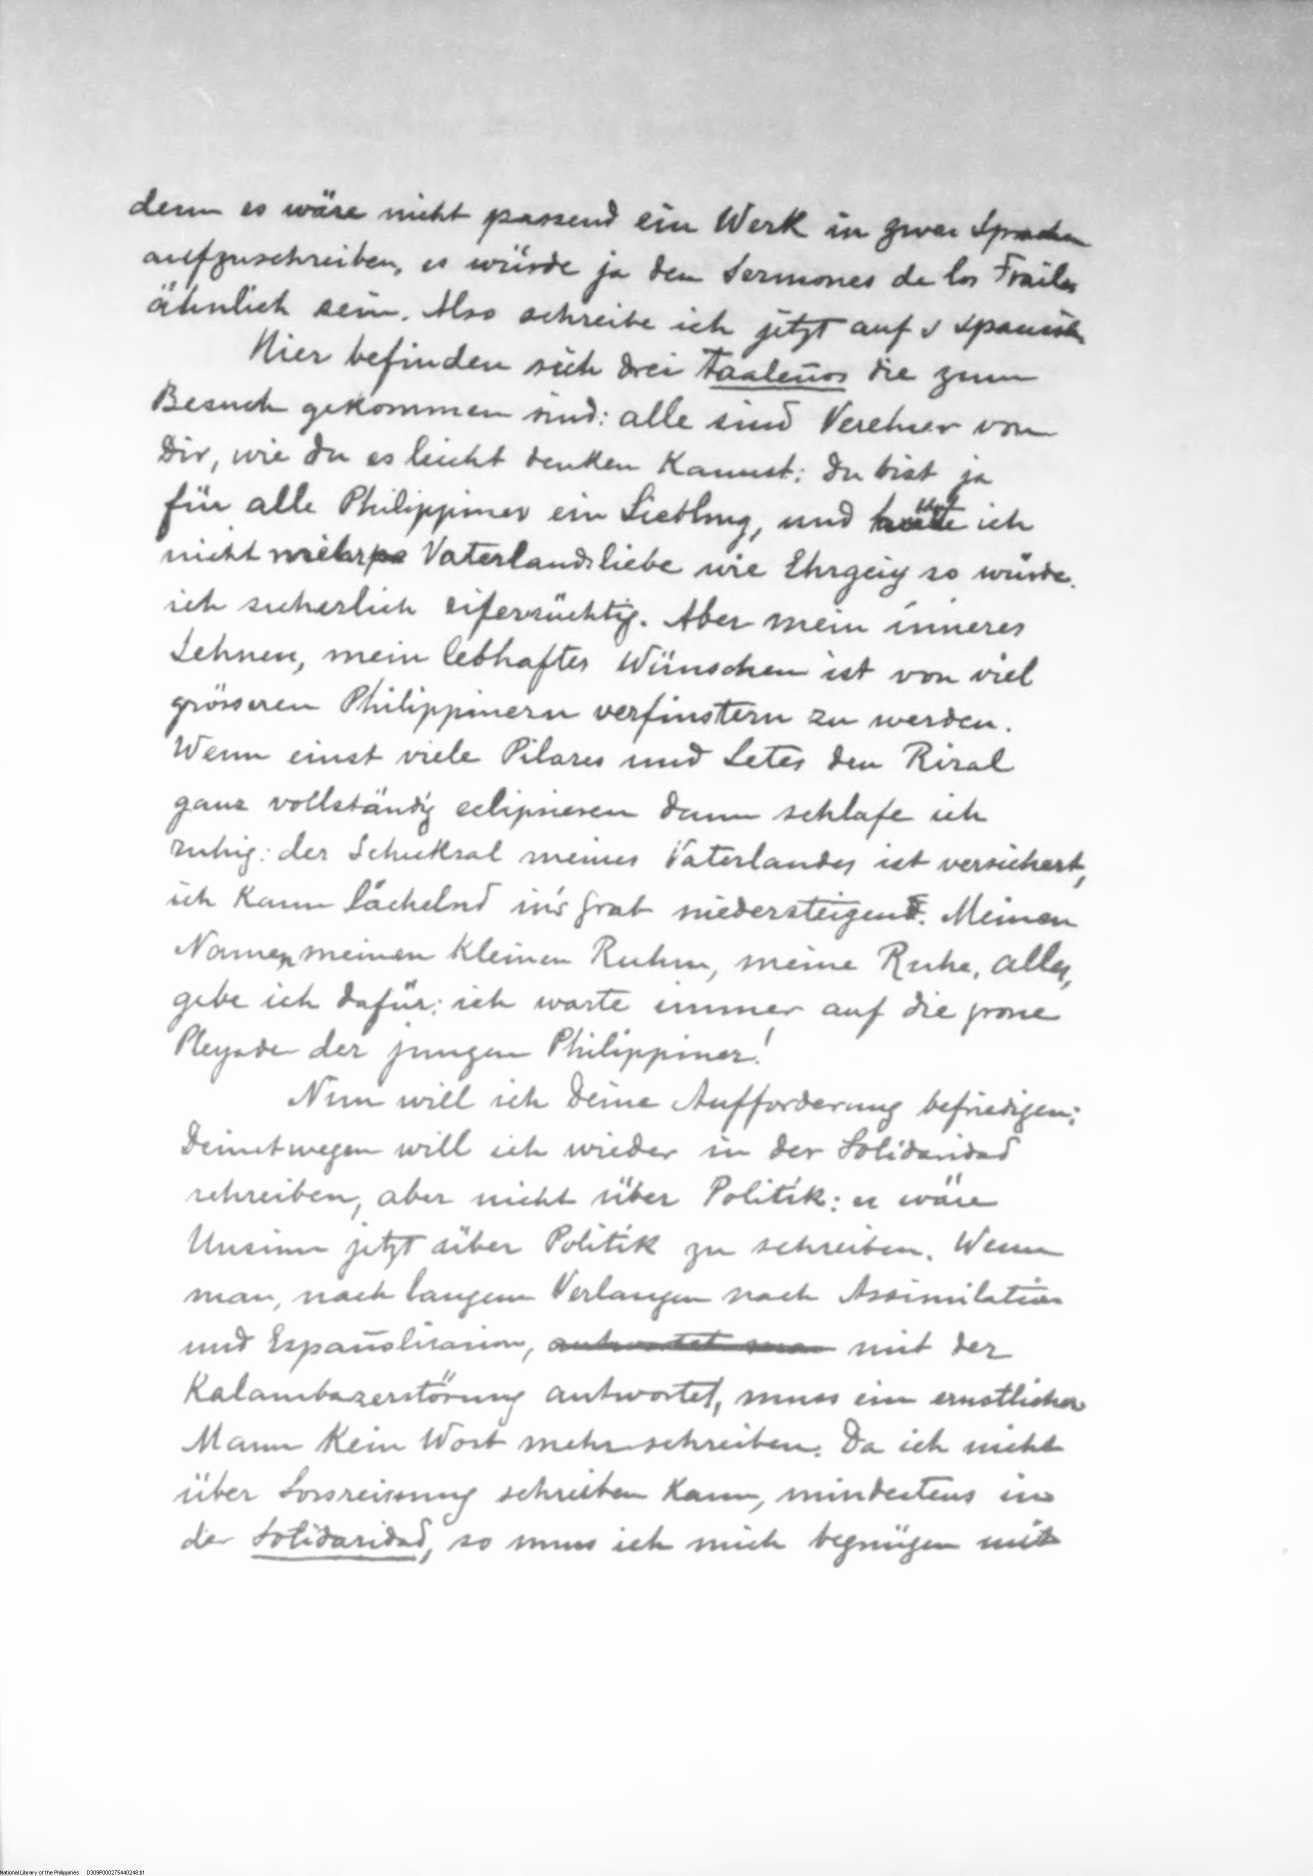 denn es wäre nicht passend ein Werk in zwei Sprachen
aufzuschreiben, es würde ja den Sermones de los Frailes
ähnlich sein. Also schreibe ich jetzt auf Spanisch
Hier befinden sich drei Taaleños die zum
Besuch gekommen sind: alle sind Verehrer von
Dir, wie du es leicht denken kannst: du bist ja
für alle Philippiner ein Liebling, und hätte ich
nicht Vaterlandsliebe wie Ehrgeiz so würde
ich sicherlich eifersüchtig. Aber mein inneres
Sehnen, mein lebhaftes Wünschen ist von viel
grösseren Philippinern verfinstern zu werden.
Wenn einst viele Pilares und Letes den Rizal
ganz vollständig eclipsieren dann schlafe ich
ruhig: der Schicksal meines Vaterlandes ist versichert,
ich kann lächelnd in's Grab niedersteigen. Meinen
Namen, meinen kleinen Ruhm, meine Ruhe, alles,
gebe ich dafür: ich warte immer auf die grosse
Pleyade der jungen Philippiner!
Nun will ich Deine Aufforderung befriedigen;
Deinetwegen will ich wieder in der Solidaridad
schreiben, aber nicht über Politik: es wäre
Unsinn jetzt über Politik zu schreiben. Wenn
man, nach langem Verlangen nach Assimilation
und Españolisacion, antwortet man mit der
Kalambazerstörung antwortet, muss ein ernstlicher
Mann kein Wort mehr schreiben. Da ich nicht
über Lossreissung schreiben kann, mindestens in
der Solidaridad, so muss ich mich begnügen mit
National Library of the Philippines